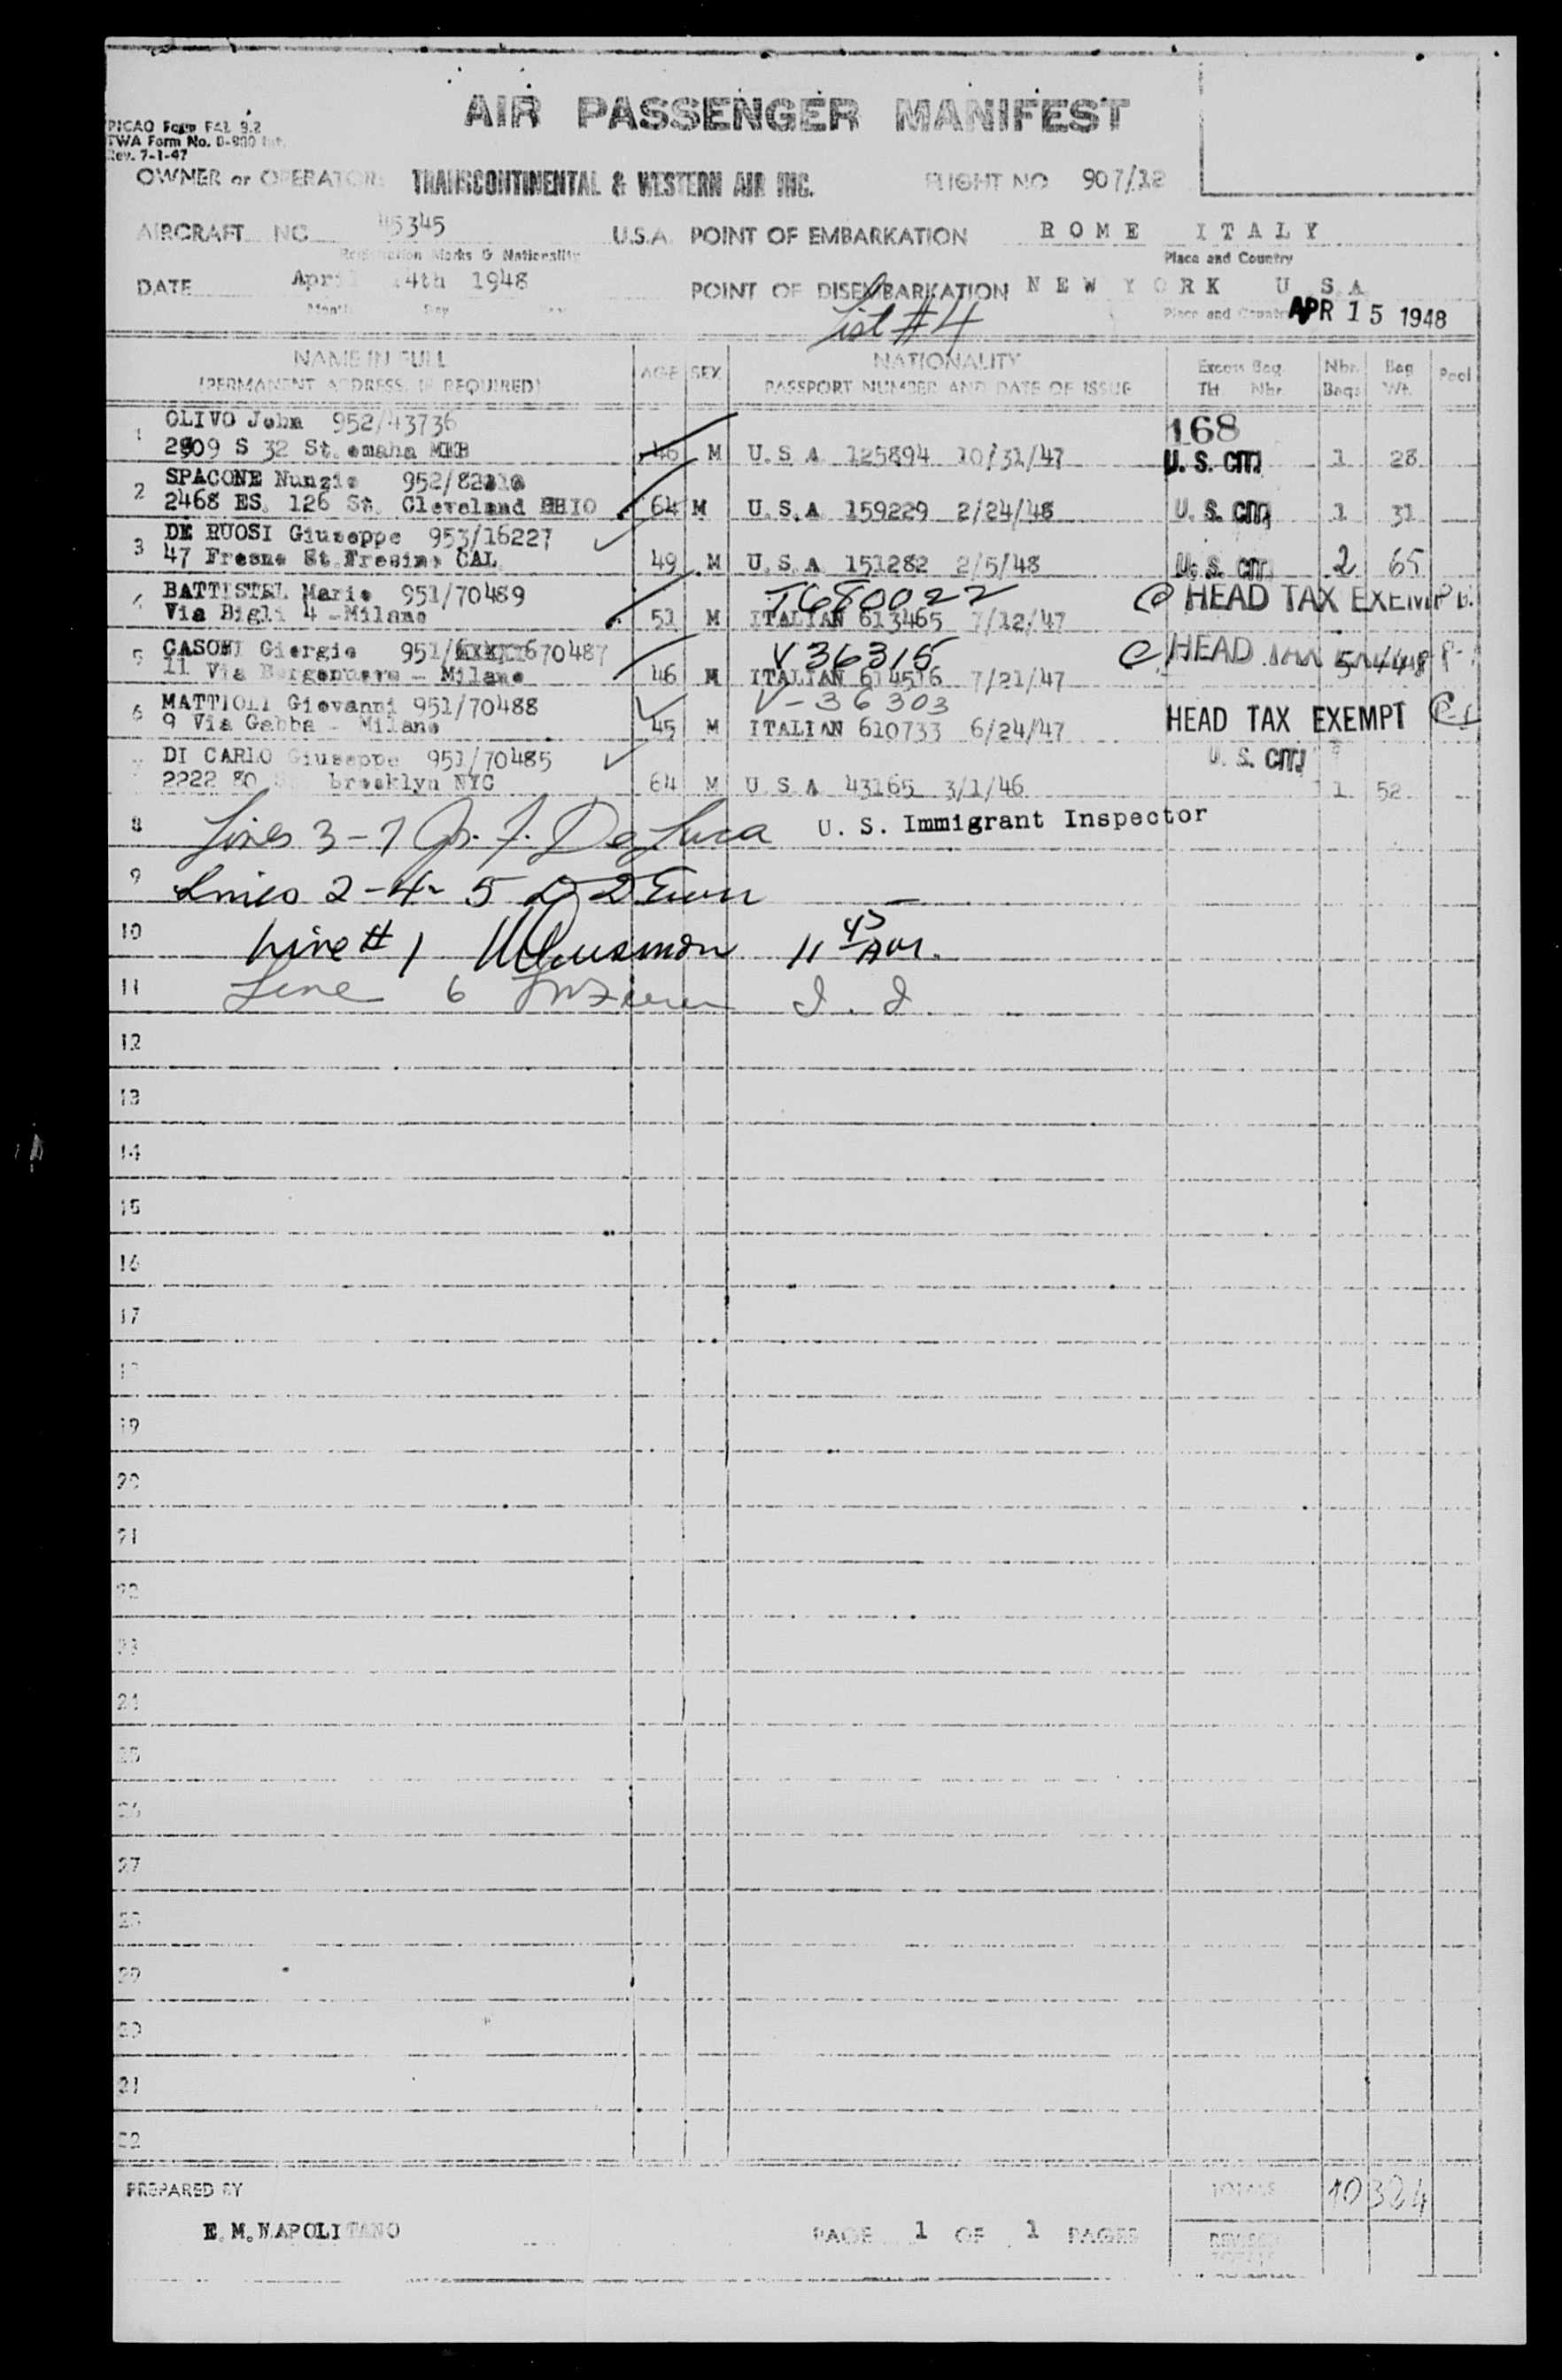 AIR PASSENGER MANIFEST
PICAO Form FAL 9.2
TWA Form No. D-900 Int.
Rev. 7-1-47
OWNER or OPERATOR: TRANSCONTINENTAL & WESTERN AIR INC. FLIGHT NO 907/12
AIRCRAFT NC 45345 U.S.A. POINT OF EMBARKATION ROME ITALY
Registration Marks & Nationality Place and Country
DATE April 14th 1948 POINT OF DISEMBARKATION NEW YORK U S A
Month Day Year Place and Country APR 15 1948
List #4
NAME IN FULL (PERMANENT ADDRESS, IF REQUIRED) AGE SEX NATIONALITY PASSPORT NUMBER AND DATE OF ISSUE Excess Bag. Tkt. Nbr. Nbr. Bags Bag Wt. Pool
1 OLIVO John 952/43736 168
2909 S 32 St. omaha NEB 46 M U.S.A 125894 10/31/47 U. S. CIT. 1 28
2 SPACONE Nunzio 952/82
2468 ES. 126 St. Cleveland OHIO 64 M U.S.A 159229 2/24/48 U. S. CIT. 1 31
3 DE RUOSI Giuseppe 953/16227
47 Fresno St. Fresino CAL 49 M U.S.A 151282 2/5/48 U. S. CIT. 2 65
4 BATTISTEL Mario 951/70489 T680022 HEAD TAX EXEMPT
Via Bigli 4 -Milano 51 M ITALIAN 613465 7/12/47
5 CASONI Giorgio 951/ 670487 V36315 HEAD TAX
11 Via - Milano 46 M ITALIAN 614516 7/21/47
6 MATTIOLI Giovanni 951/70488 V-36303 HEAD TAX EXEMPT
9 Via Gabba - Milano 45 M ITALIAN 610733 6/24/47
7 DI CARLO Giuseppe 951/70485 U. S. CIT.
2222 80 St brooklyn NYC 64 M U.S.A 43165 3/1/46 1 52
8 Lines 3-7 De Luca U. S. Immigrant Inspector
9 Lines 2-4-5
10 Line #1 11 45 AM.
11 Line 6 I. I
12
13
14
15
16
17
18
19
20
21
22
23
24
25
26
27
28
29
30
31
32
PREPARED BY TOTALS 10 324
E.M.NAPOLITANO PAGE 1 OF 1 PAGES REVISED TOTALS